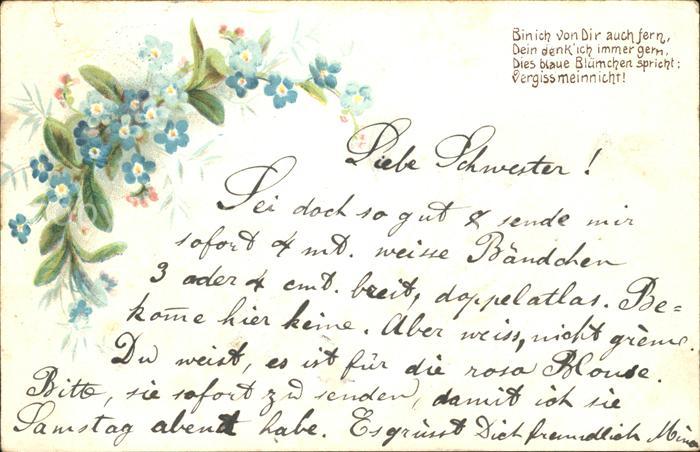 Bin ich von Dir auch fern,
Dein denk' ich immer gern,
Dies blaue Blümchen spricht:
Vergissmeinnicht!
Liebe Schwester!
Sei doch so gut & sende mir
sofort 4 mt. weisse Bändchen
3 oder 4 cmt. breit, doppelatlas. Be-
kom̄e hier keine. Aber weiss, nicht grème.
Du weist, es ist für die rosa Blouse.
Bitte, sie sofort zu senden, damit ich sie
Samstag abend habe. Es grüsst Dich freundlich Mina